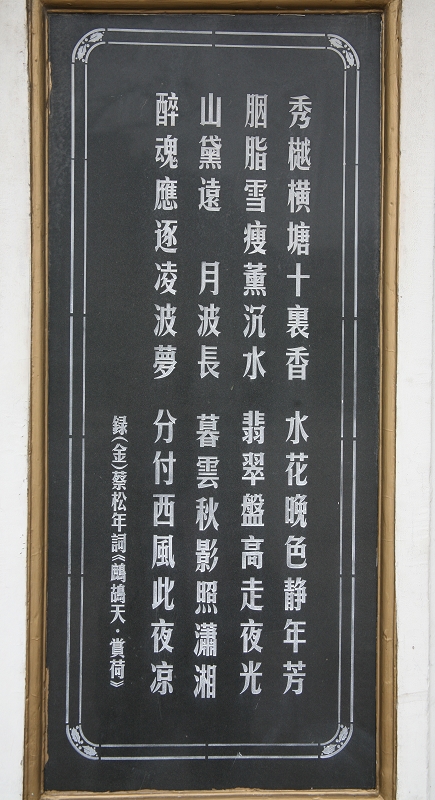 秀樾橫塘十裏香　水花晚色静年芳
胭脂雪瘦薰沉水　翡翠盤高走夜光
山黛遠　月波長　暮雲秋影照瀟湘
醉魂應逐凌波夢　分付西風此夜凉
録(金)蔡松年詞《鷓鴣天·賞荷》